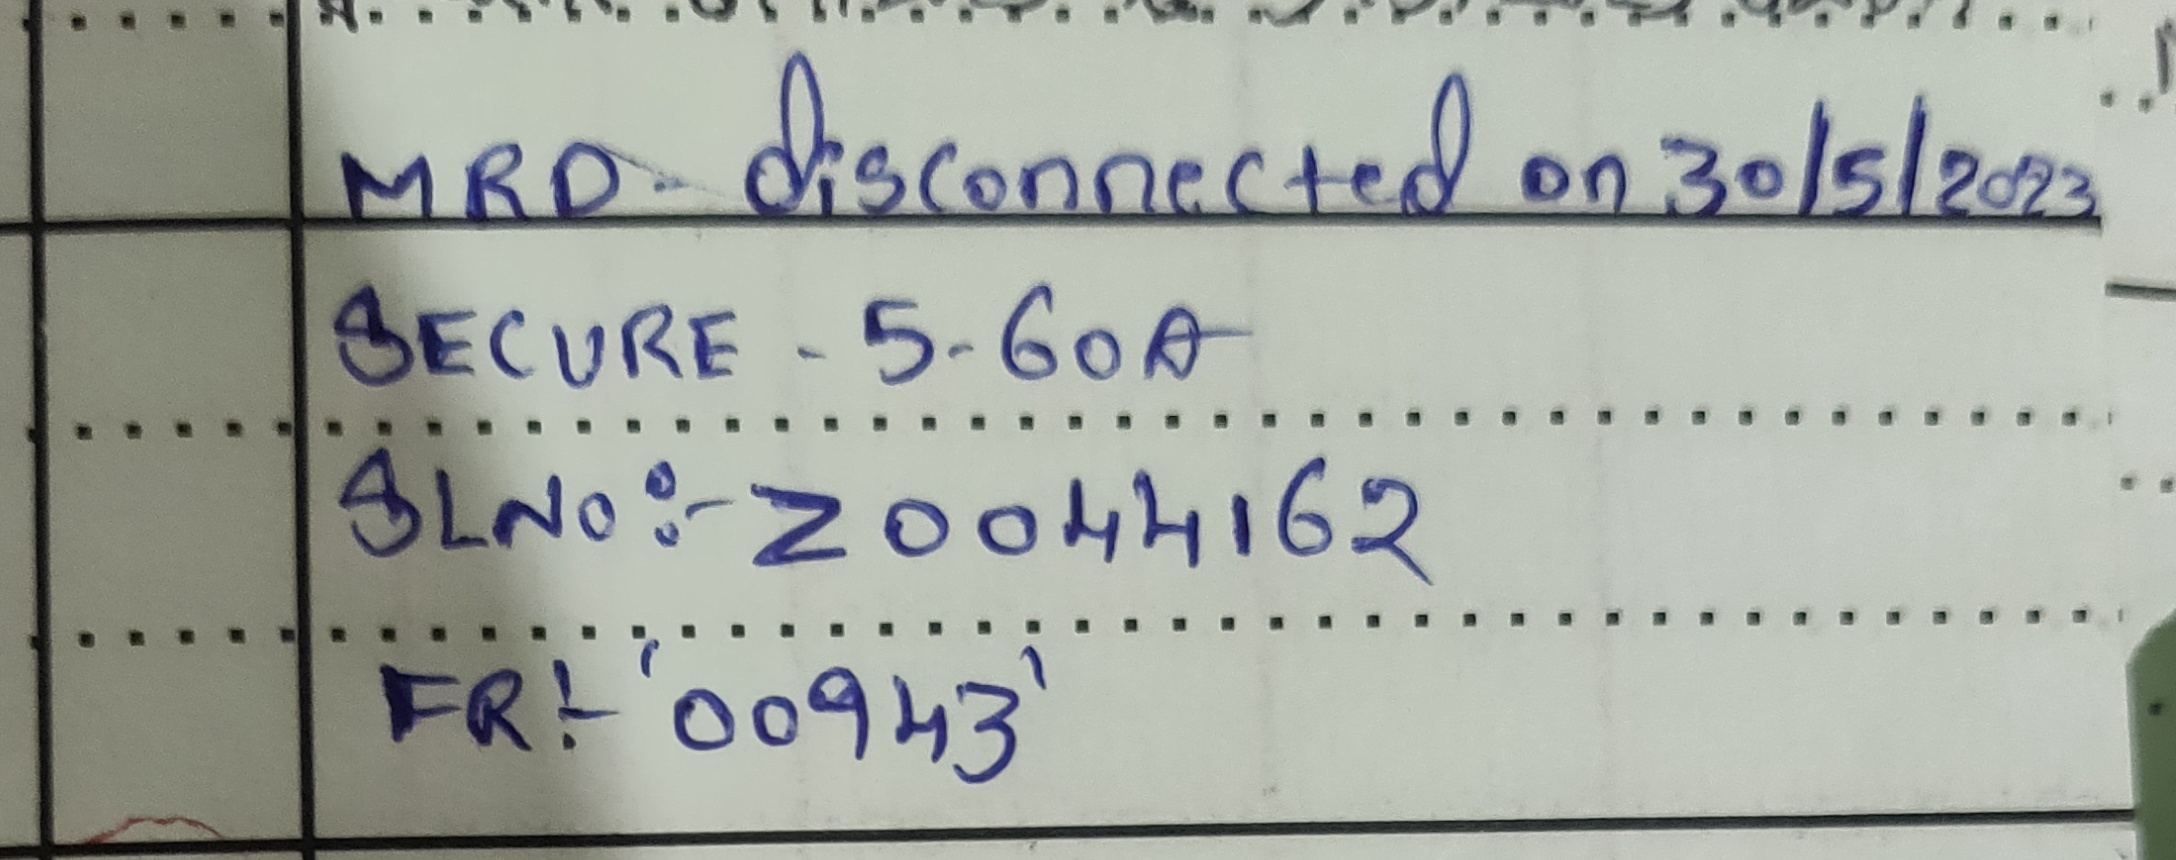 MRD - disconnected on 30/5/2023
SECURE - 5-60A
SLNO:- Z0044162
FR:- '00943'